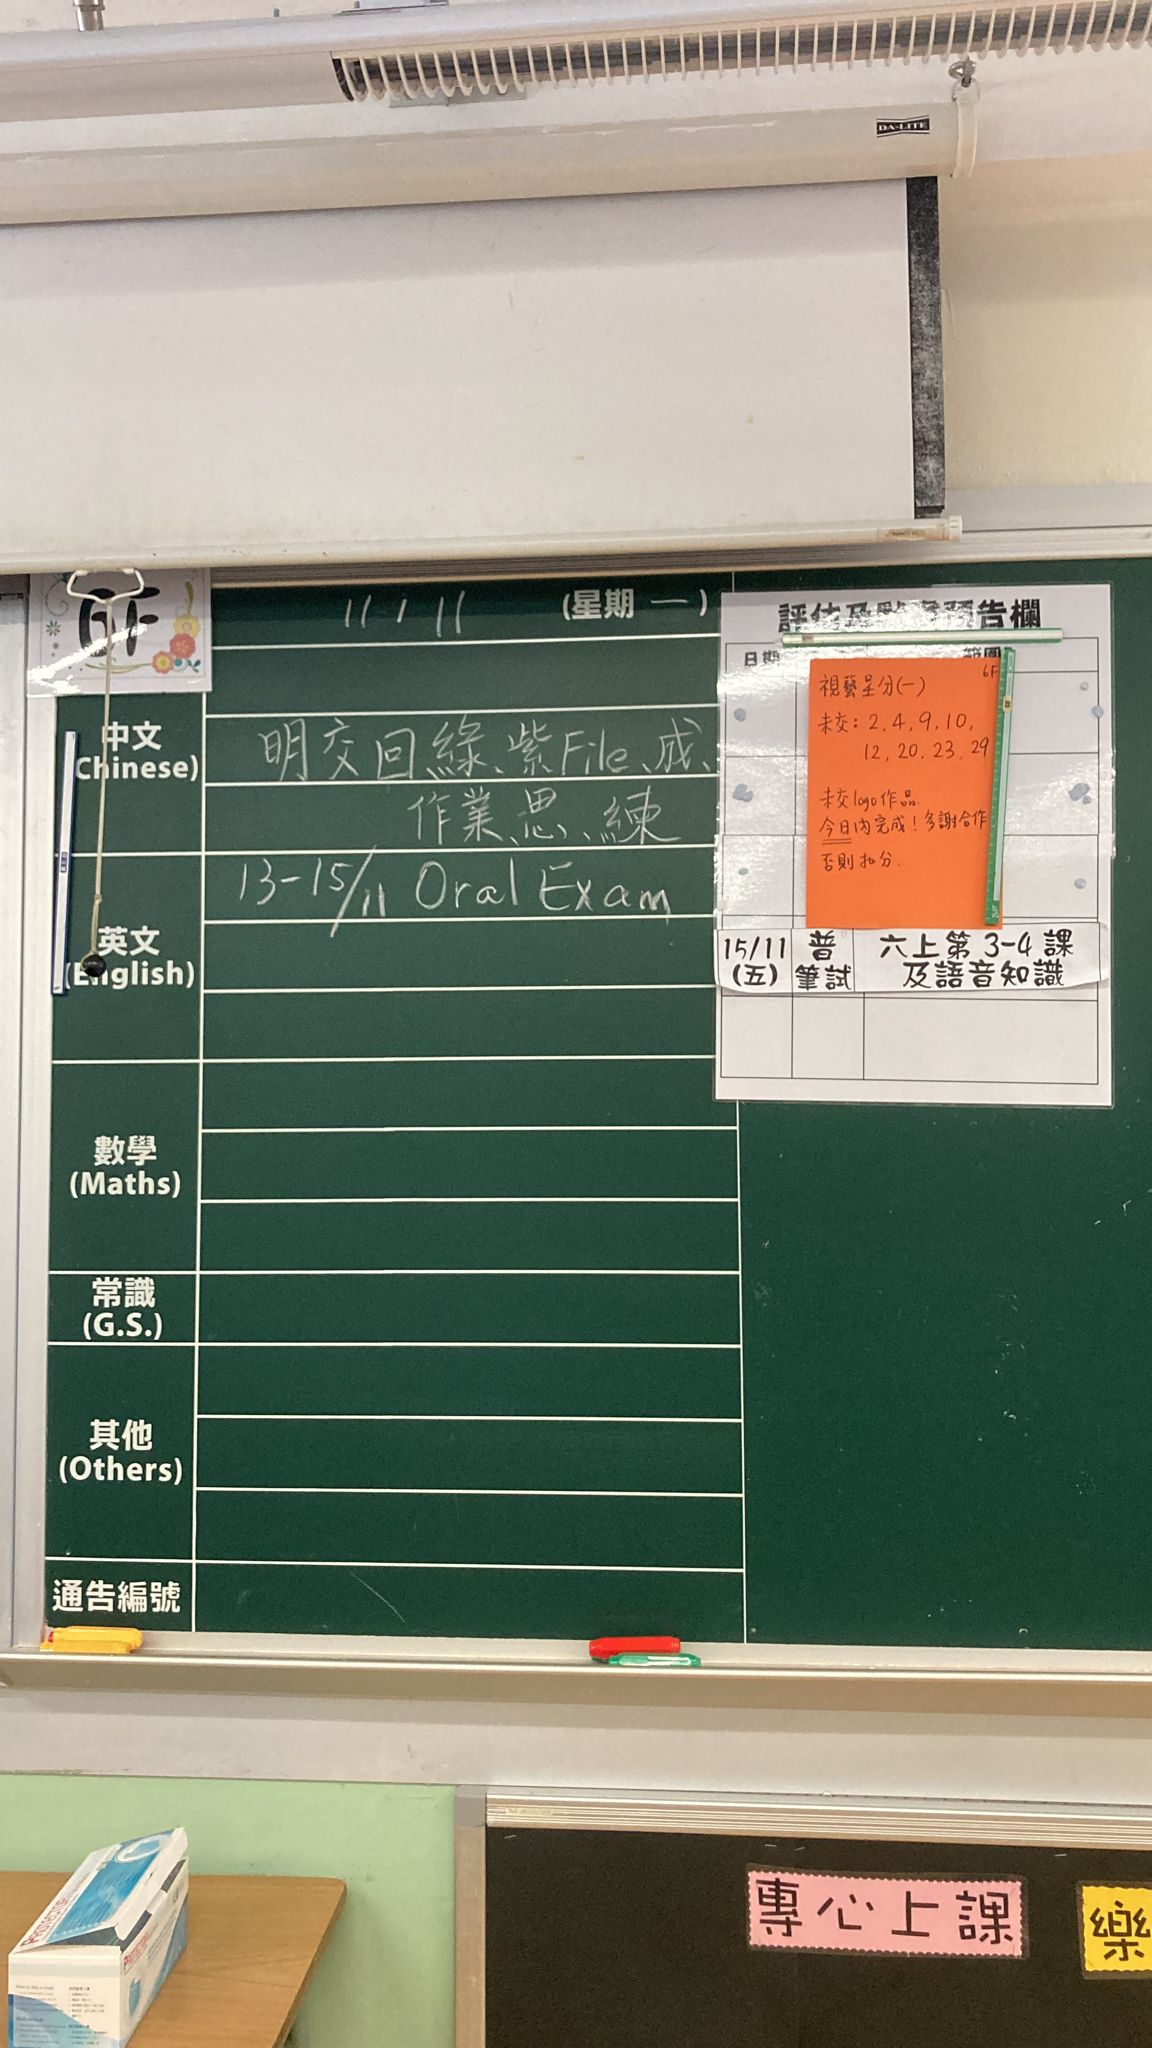 DA-LITE
6F
11 . 11 (星期 一)
中文
(Chinese)
明交回綠、紫File、成、
作業、思、練
英文
(English)
13-15/11 Oral Exam
數學
(Maths)
常識
(G.S.)
其他
(Others)
通告編號
評估及 預告欄
日期 範圍
6F
視藝呈分(一)
未交: 2, 4, 9, 10,
12, 20, 23, 29
未交logo作品
今日內完成！多謝合作
否則扣分.
15/11
(五)
普
筆試
六上第3-4課
及語音知識
專心上課
樂